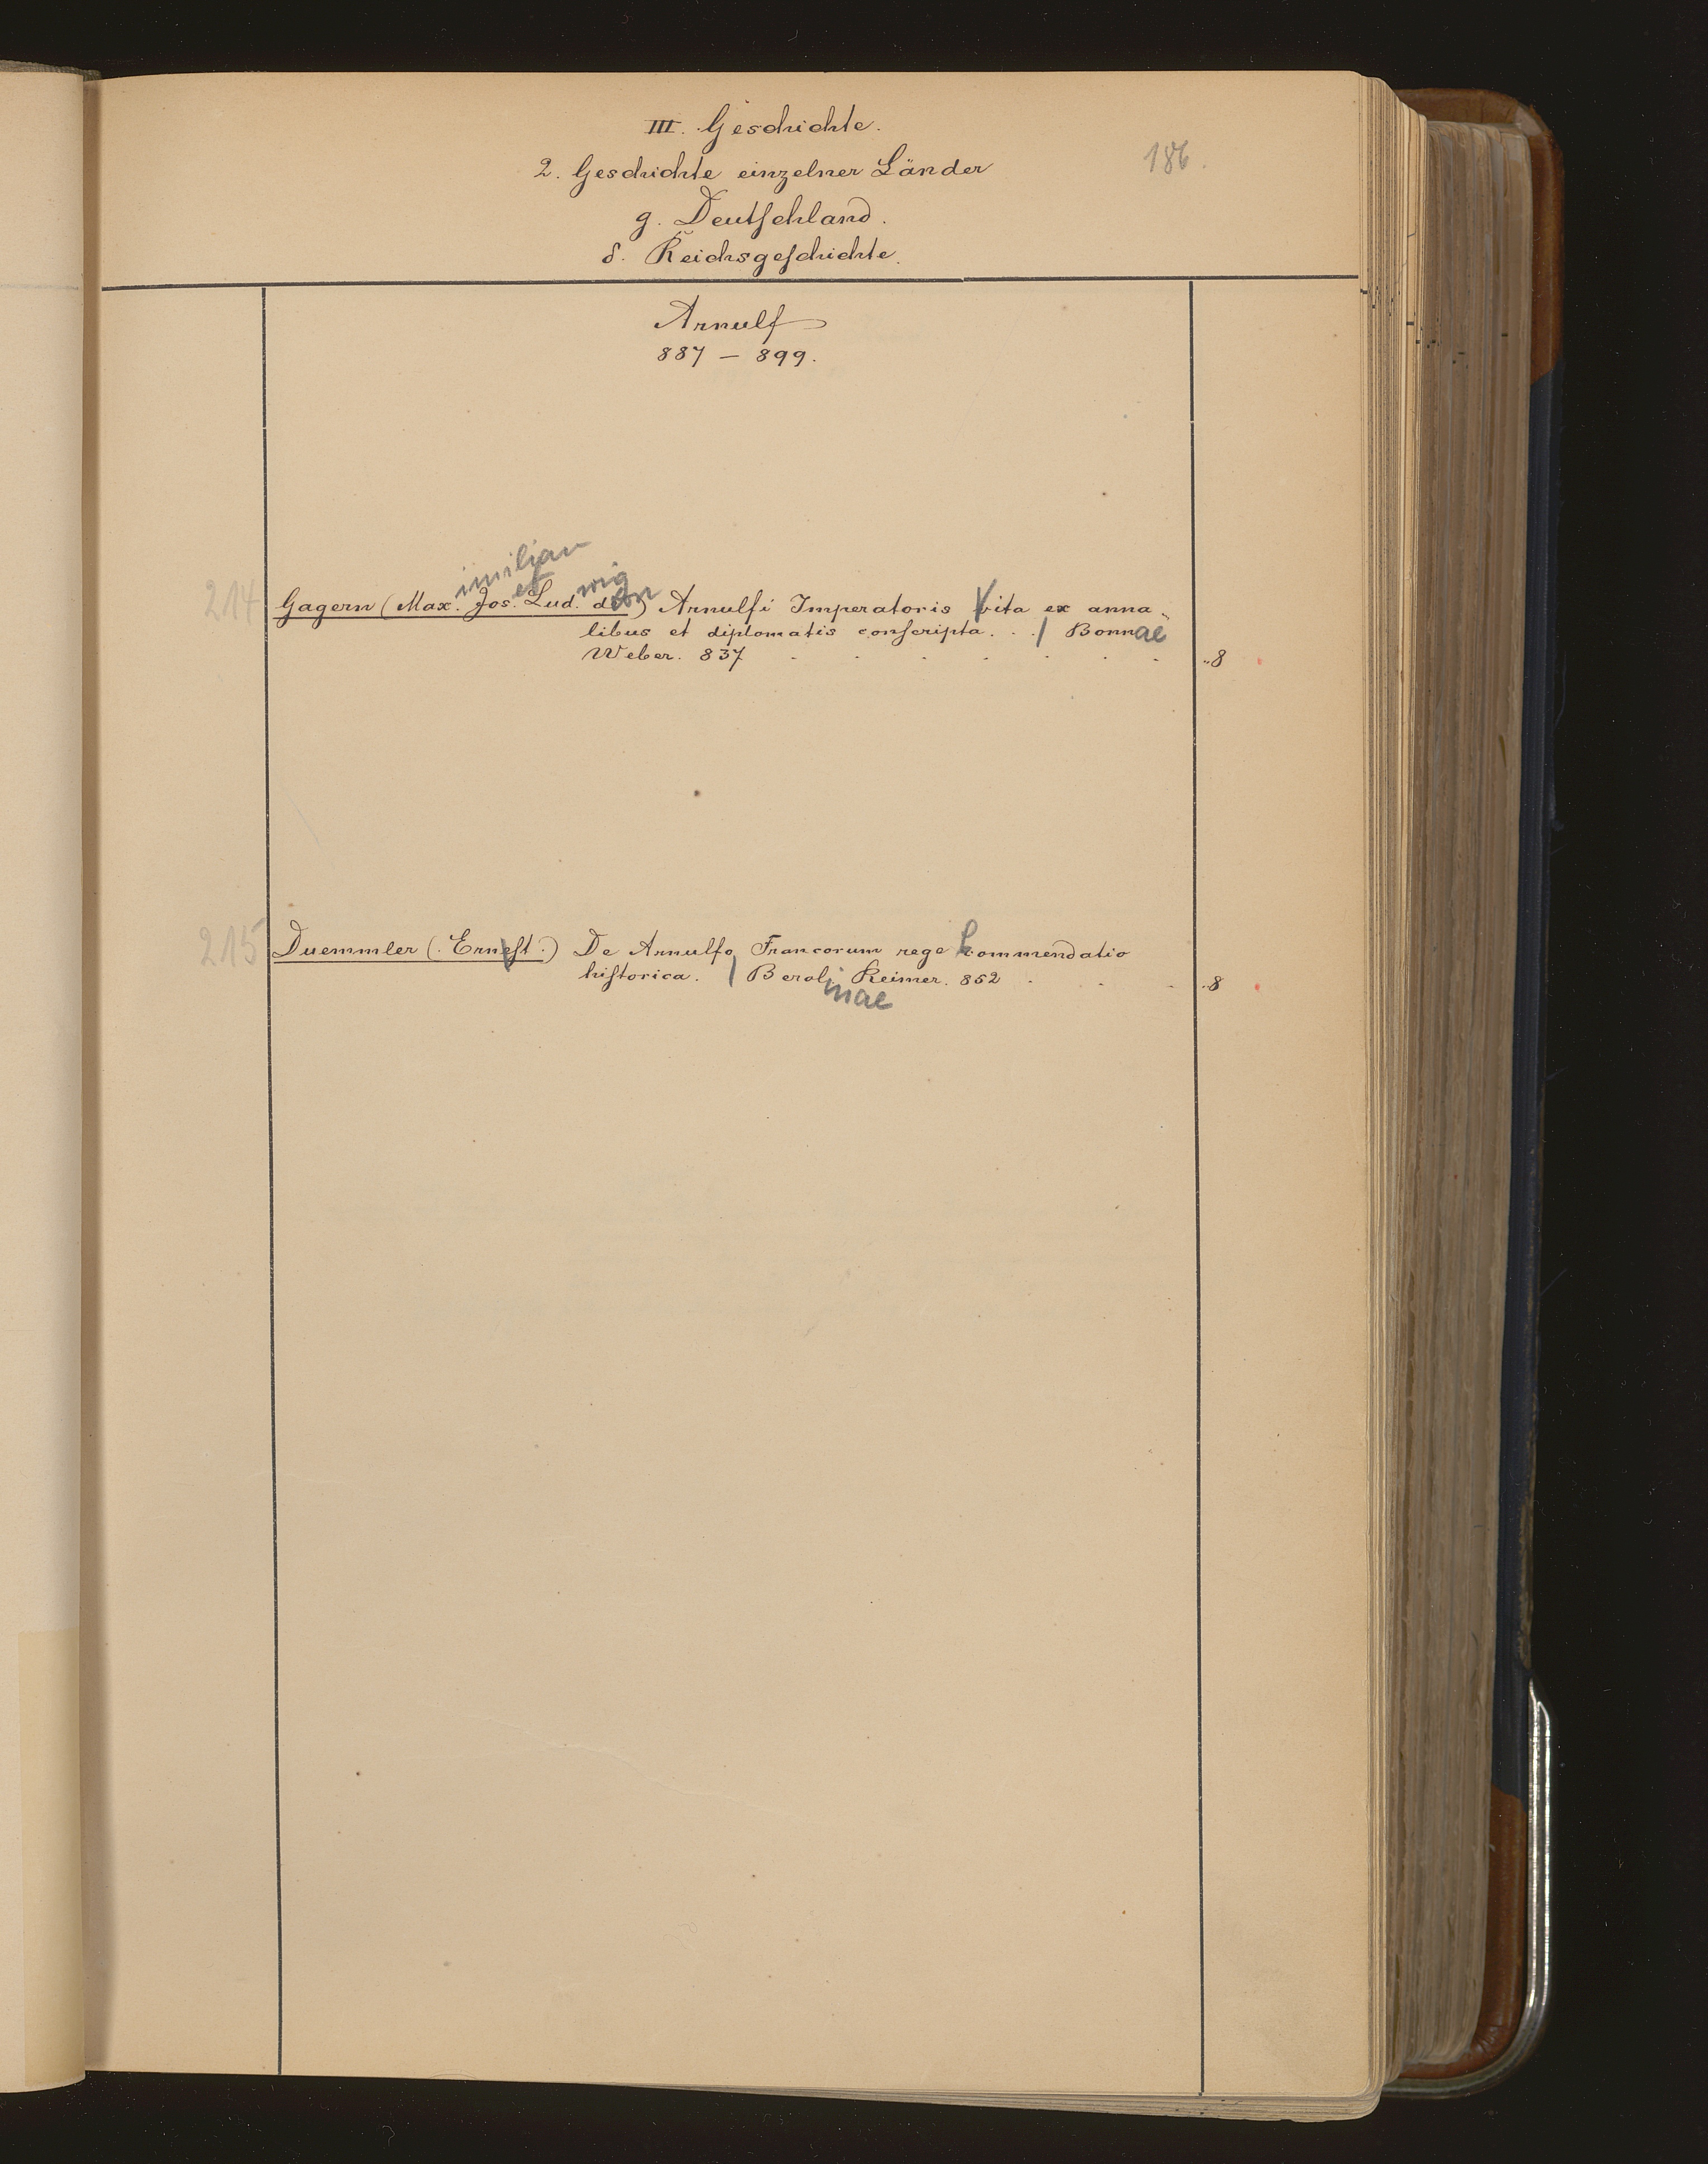 III. Geschichte.
186.
2. Geschichte einzelner Länder
g. Deutschland.
δ. Reichsgeschichte.
Arnulf
887 – 899.
imilian
et wig
214 Gagern (Max. Jos. Lud. de von) Arnulfi Imperatoris Vita ex anna-
libus et diplomatis conscripta. . . / Bonnae
Weber. 837 . . . . . . . 8
215 Duemmler (Ernest.) De Arnulfo Francorum rege commendatio
historica. / Berol. Reimer. 852 . . . 8
inae